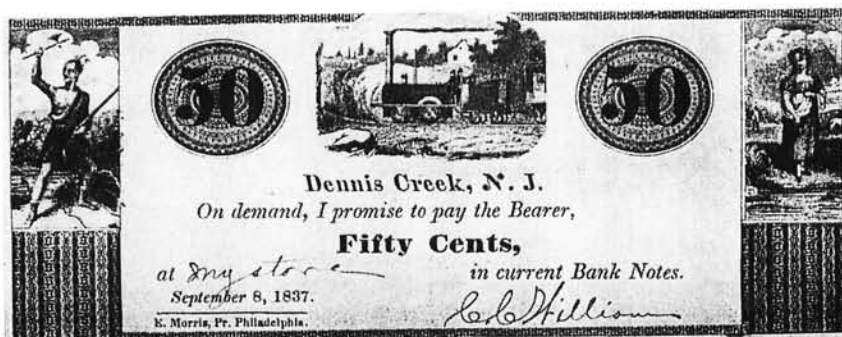 50 50
Dennis Creek, N. J.
On demand, I promise to pay the Bearer,
Fifty Cents,
at my store in current Bank Notes.
September 8, 1837.
E. Morris, Pr. Philadelphia.